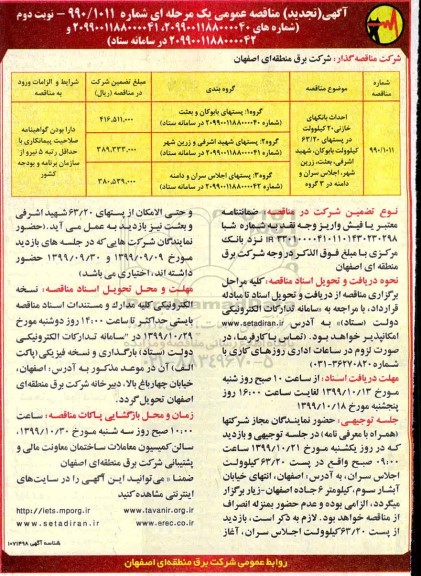 آگهی(تجدید) مناقصه عمومی یک مرحله ای شماره ۹۹۰/۱۰۱۱ - نوبت دوم
(شماره های ۲۰۹۹۰۰۱۱۸۸۰۰۰۰۴۰، ۲۰۹۹۰۰۱۱۸۸۰۰۰۰۴۱ و
۲۰۹۹۰۰۱۱۸۸۰۰۰۰۴۲ در سامانه ستاد)
شرکت مناقصه گذار: شرکت برق منطقه‌ای اصفهان
شماره مناقصه
موضوع مناقصه
گروه بندی
مبلغ تضمین شرکت در مناقصه (ریال)
شرایط و الزامات ورود به مناقصه
۹۹۰/۱۰۱۱
احداث بانکهای خازنی ۲۰ کیلوولت در پستهای ۶۳/۲۰ کیلوولت بابوکان، شهید اشرفی، بعثت، زرین شهر، اجلاس سران و دامنه در ۳ گروه
گروه۱: پستهای بابوکان و بعثت
(شماره ۲۰۹۹۰۰۱۱۸۸۰۰۰۰۴۰ در سامانه ستاد)
۴۱۶،۵۱۱،۰۰۰
گروه۲: پستهای شهید اشرفی و زرین شهر
(شماره ۲۰۹۹۰۰۱۱۸۸۰۰۰۰۴۱ در سامانه ستاد)
۳۸۹،۳۳۳،۰۰۰
گروه۳: پستهای اجلاس سران و دامنه
(شماره ۲۰۹۹۰۰۱۱۸۸۰۰۰۰۴۲ در سامانه ستاد)
۳۸۰،۵۳۹،۰۰۰
دارا بودن گواهینامه صلاحیت پیمانکاری با حداقل رتبه ۵ نیرو از سازمان برنامه و بودجه کشور
نوع تضمین شرکت در مناقصه: ضمانتنامه
معتبر یا فیش واریز وجه نقد به شماره شبا
نزد بانک
مرکزی یا مبلغ فوق الذکر در وجه شرکت برق
منطقه ای اصفهان
نحوه دریافت و تحویل اسناد مناقصه: کلیه مراحل
برگزاری مناقصه از دریافت و تحویل اسناد تا مبادله
قرارداد، با مراجعه به «سامانه تدارکات الکترونیکی
دولت (ستاد)» به آدرس www.setadiran.ir
امکانپذیر خواهد بود. (تماس با کارفرما، در
صورت لزوم در ساعات اداری روزهای کاری با
شماره ۳۶۲۷۰۸۲۰-۰۳۱)
مهلت دریافت اسناد: از ساعت ۱۰ صبح روز شنبه
مورخ ۱۳۹۹/۱۰/۱۳ لغایت ساعت ۱۶:۰۰ روز
پنجشنبه مورخ ۱۳۹۹/۱۰/۱۸
جلسه توجیهی: حضور نمایندگان مجاز شرکتها
(همراه با معرفی نامه) در جلسه توجیهی و بازدید
که در روز یکشنبه مورخ ۱۳۹۹/۱۰/۲۱ ساعت
۰۹:۰۰ صبح واقع در پست ۶۳/۲۰ کیلوولت
اجلاس سران، به آدرس: اصفهان، انتهای خیابان
آبشار سوم، کیلومتر ۶ جاده اصفهان-زیار برگزار
میگردد، الزامی بوده و عدم حضور بمنزله انصراف
از مناقصه خواهد بود. لازم به ذکر است، بازدید
از پست ۶۳/۲۰ کیلوولت اجلاس سران، آغاز
و حتی الامکان از پستهای ۶۳/۲۰ شهید اشرفی
و بعثت نیز بازدید به عمل می آید. (حضور
نمایندگان شرکت هایی که در جلسه های بازدید
مورخ ۱۳۹۹/۰۹/۰۹ و ۱۳۹۹/۰۹/۳۰ حضور
داشته اند، اختیاری می باشد)
مهلت و محل تحویل اسناد مناقصه: نسخه
الکترونیکی کلیه مدارک و مستندات اسناد مناقصه
بایستی حداکثر تا ساعت ۱۴:۰۰ روز دوشنبه مورخ
۱۳۹۹/۱۰/۲۹ در "سامانه تدارکات الکترونیکی
دولت (ستاد)" بارگذاری و نسخه فیزیکی (پاکت
الف) آن در موعد مذکور به آدرس: اصفهان،
خیابان چهارباغ بالا، دبیرخانه شرکت برق منطقه‌ای
اصفهان تحویل گردد.
زمان و محل بازگشایی پاکات مناقصه: ساعت
۱۰:۰۰ صبح روز سه شنبه مورخ ۱۳۹۹/۱۰/۳۰،
سالن کمیسیون معاملات ساختمان معاونت مالی و
پشتیبانی شرکت برق منطقه‌ای اصفهان
ضمنا می توانید این آگهی را در سایت های
اینترنتی مشاهده کنید
http://iets.mporg.ir www.tavanir.org.ir
www.setadiran.ir www.erec.co.ir
شناسه آگهی ۱۰۷۱۴۹۸
روابط عمومی شرکت برق منطقه‌ای اصفهان